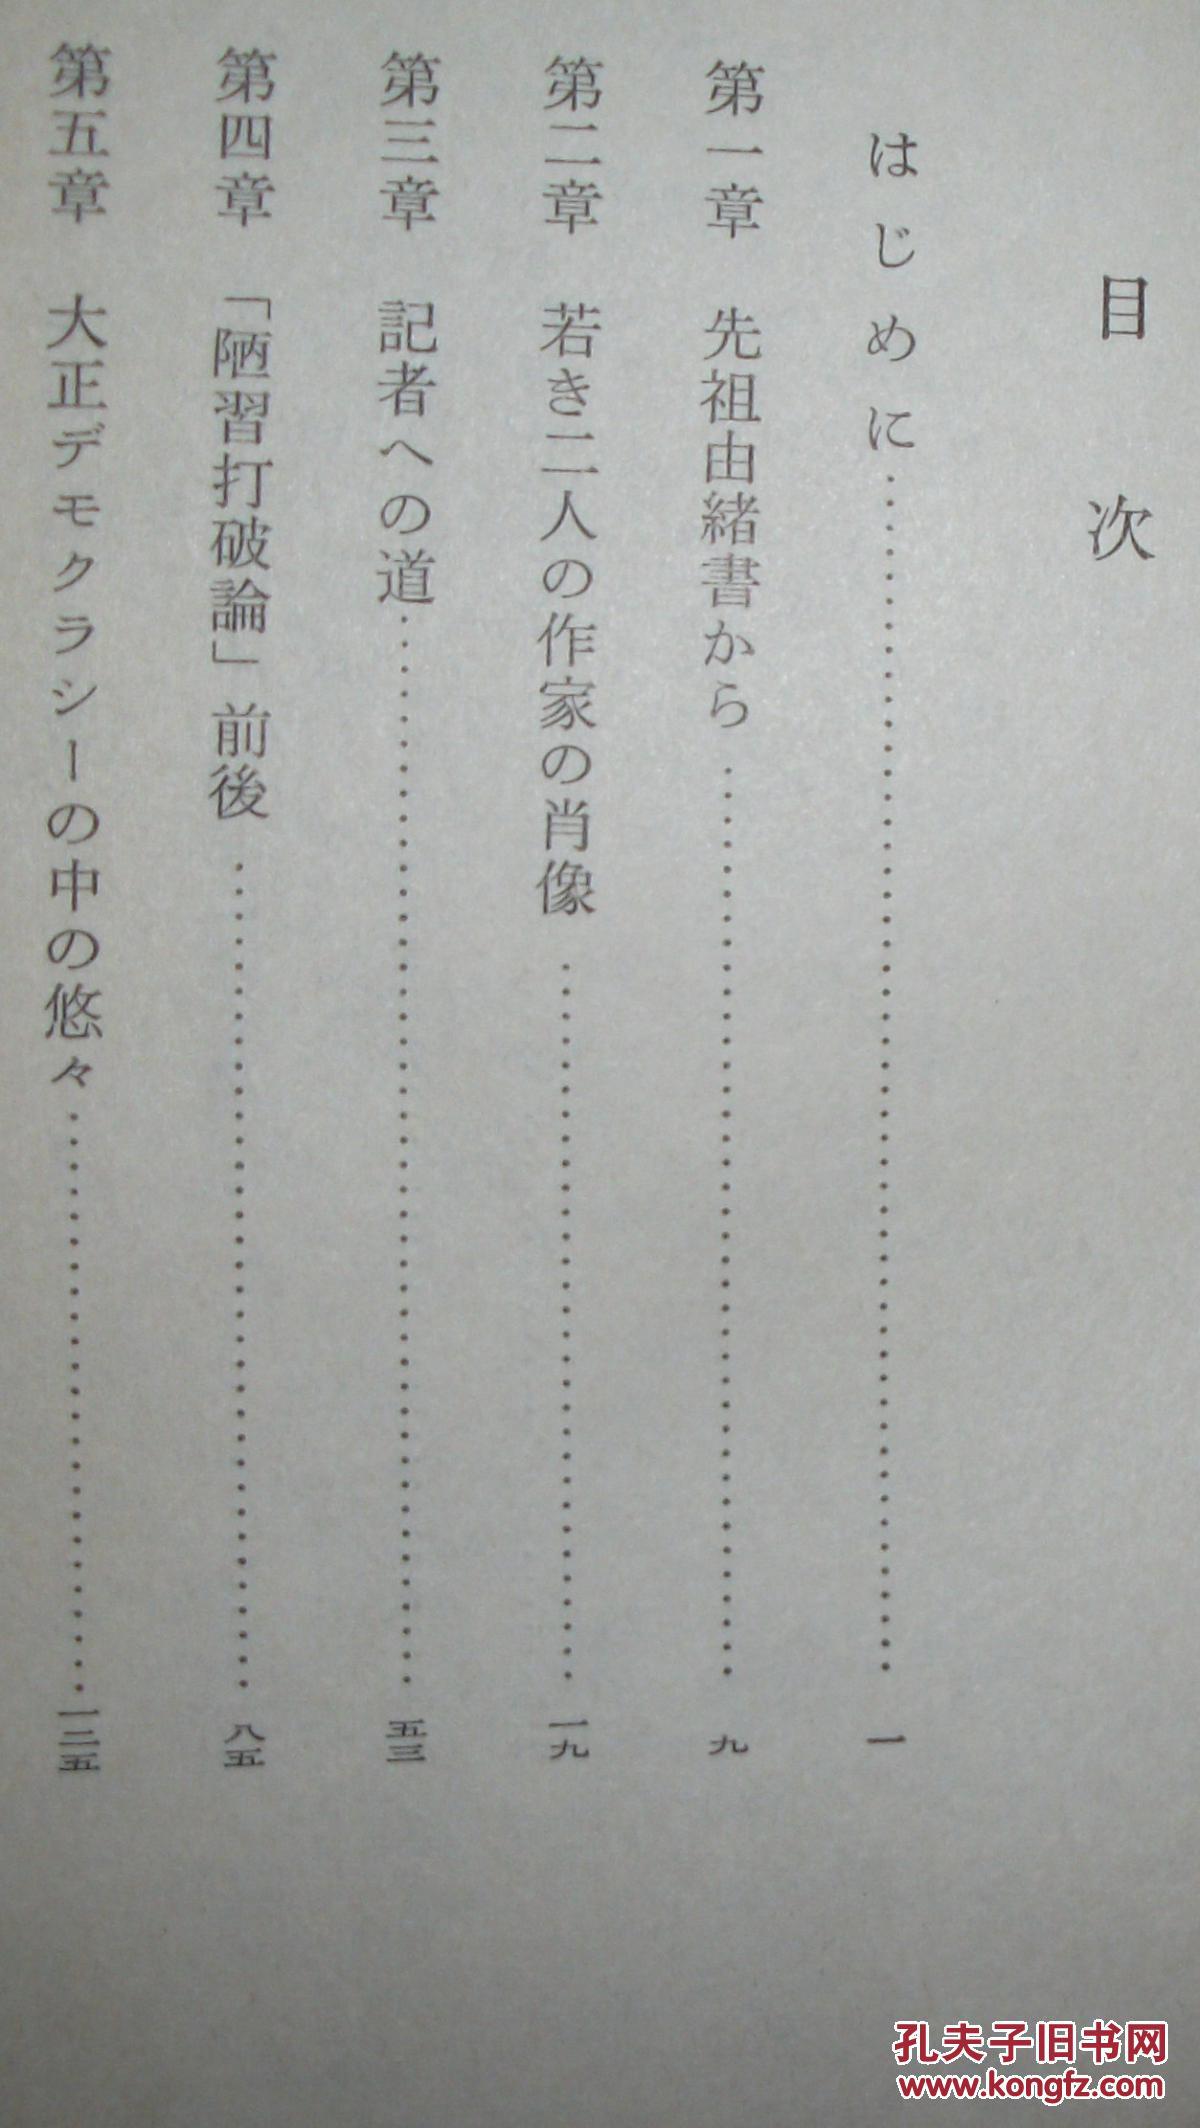 目次
はじめに……………………一
第一章 先祖由緒書から……………………九
第二章 若き二人の作家の肖像……………………一九
第三章 記者への道……………………五三
第四章 「陋習打破論」前後……………………八五
第五章 大正デモクラシーの中の悠々……………………一二五
孔夫子旧书网
www.kongfz.com